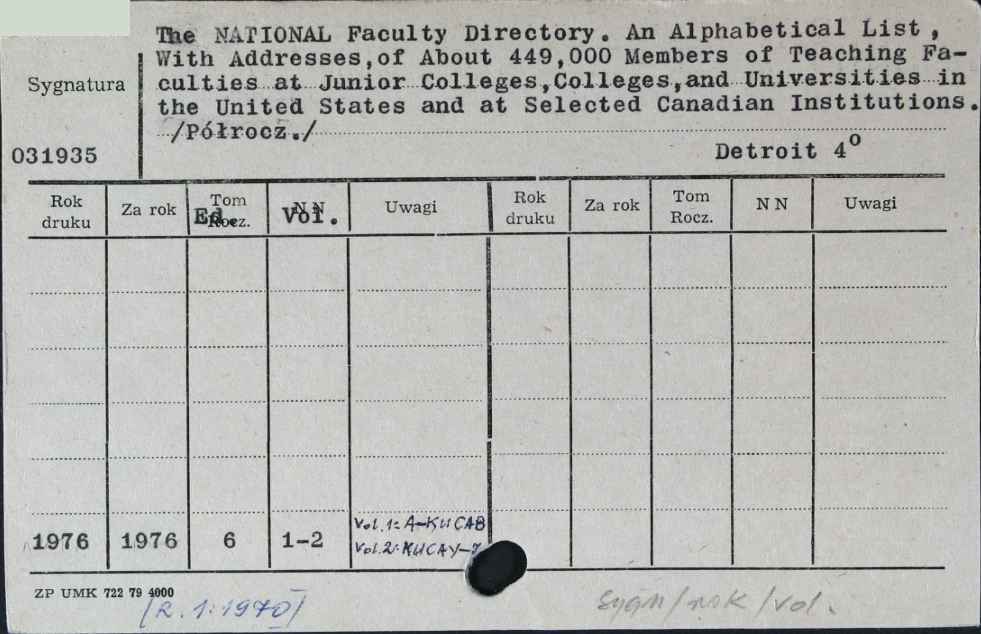 The NATIONAL Faculty Directory. An Alphabetical List,
With Addresses,of About 449,000 Members of Teaching Fa-
culties at Junior Colleges,Colleges,and Universities in
the United States and at Selected Canadian Institutions.
/Półrocz./
Sygnatura
031935
Detroit 4°
Rok druku Za rok Tom Rocz. Ed. N N Vol. Uwagi Rok druku Za rok Tom Rocz. N N Uwagi
1976 1976 6 1-2 Vol. 1: A-KUCAB
Vol. 2: KUCAY-Z
ZP UMK 722 79 4000
/R. 1: 1970/
Sygn/rok/vol.